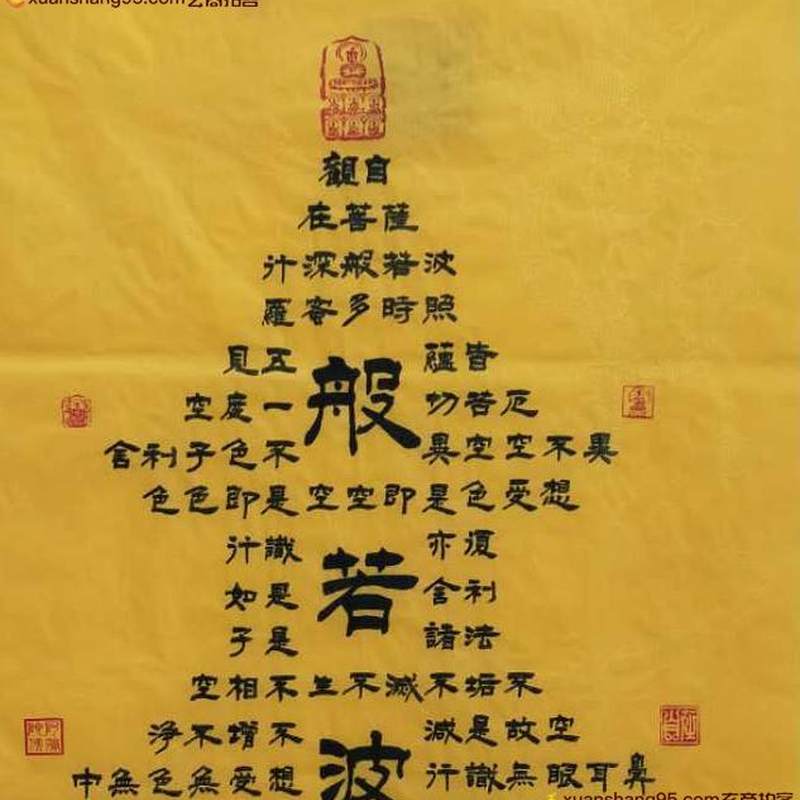 xuanshang95.com
觀自
在菩薩
行深般若波
羅蜜多時照
見五 蘊皆
空度一 切苦厄
般
舍利子色不 異空空不異
色色即是空空即是色受想
行識 亦復
如是 舍利
若
子是 諸法
空相不生不滅不垢不
淨不增不 減是故空
波
中無色無受想 行識無眼耳鼻
xuanshang95.com